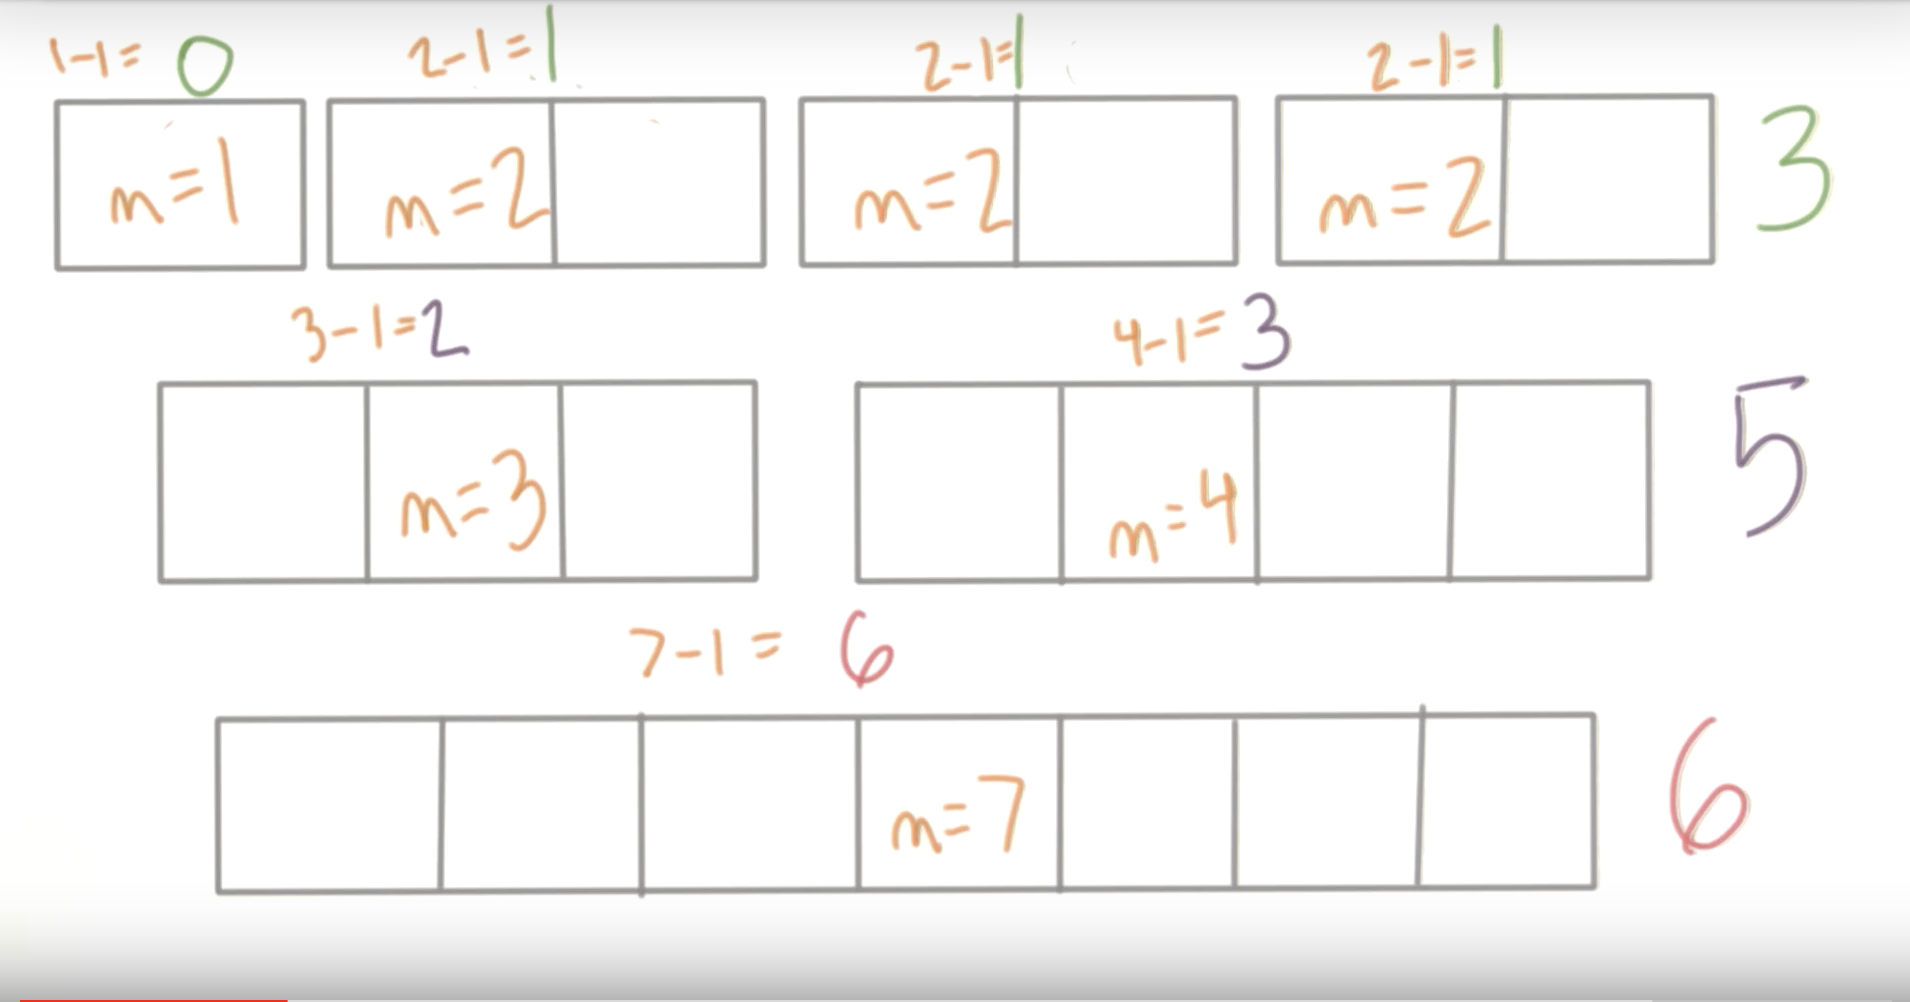 1-1= 0 2-1=1 2-1=1 2-1=1
m=1 m=2 m=2 m=2 3
3-1=2 4-1=3
m=3 m=4 5
7-1= 6
m=7 6